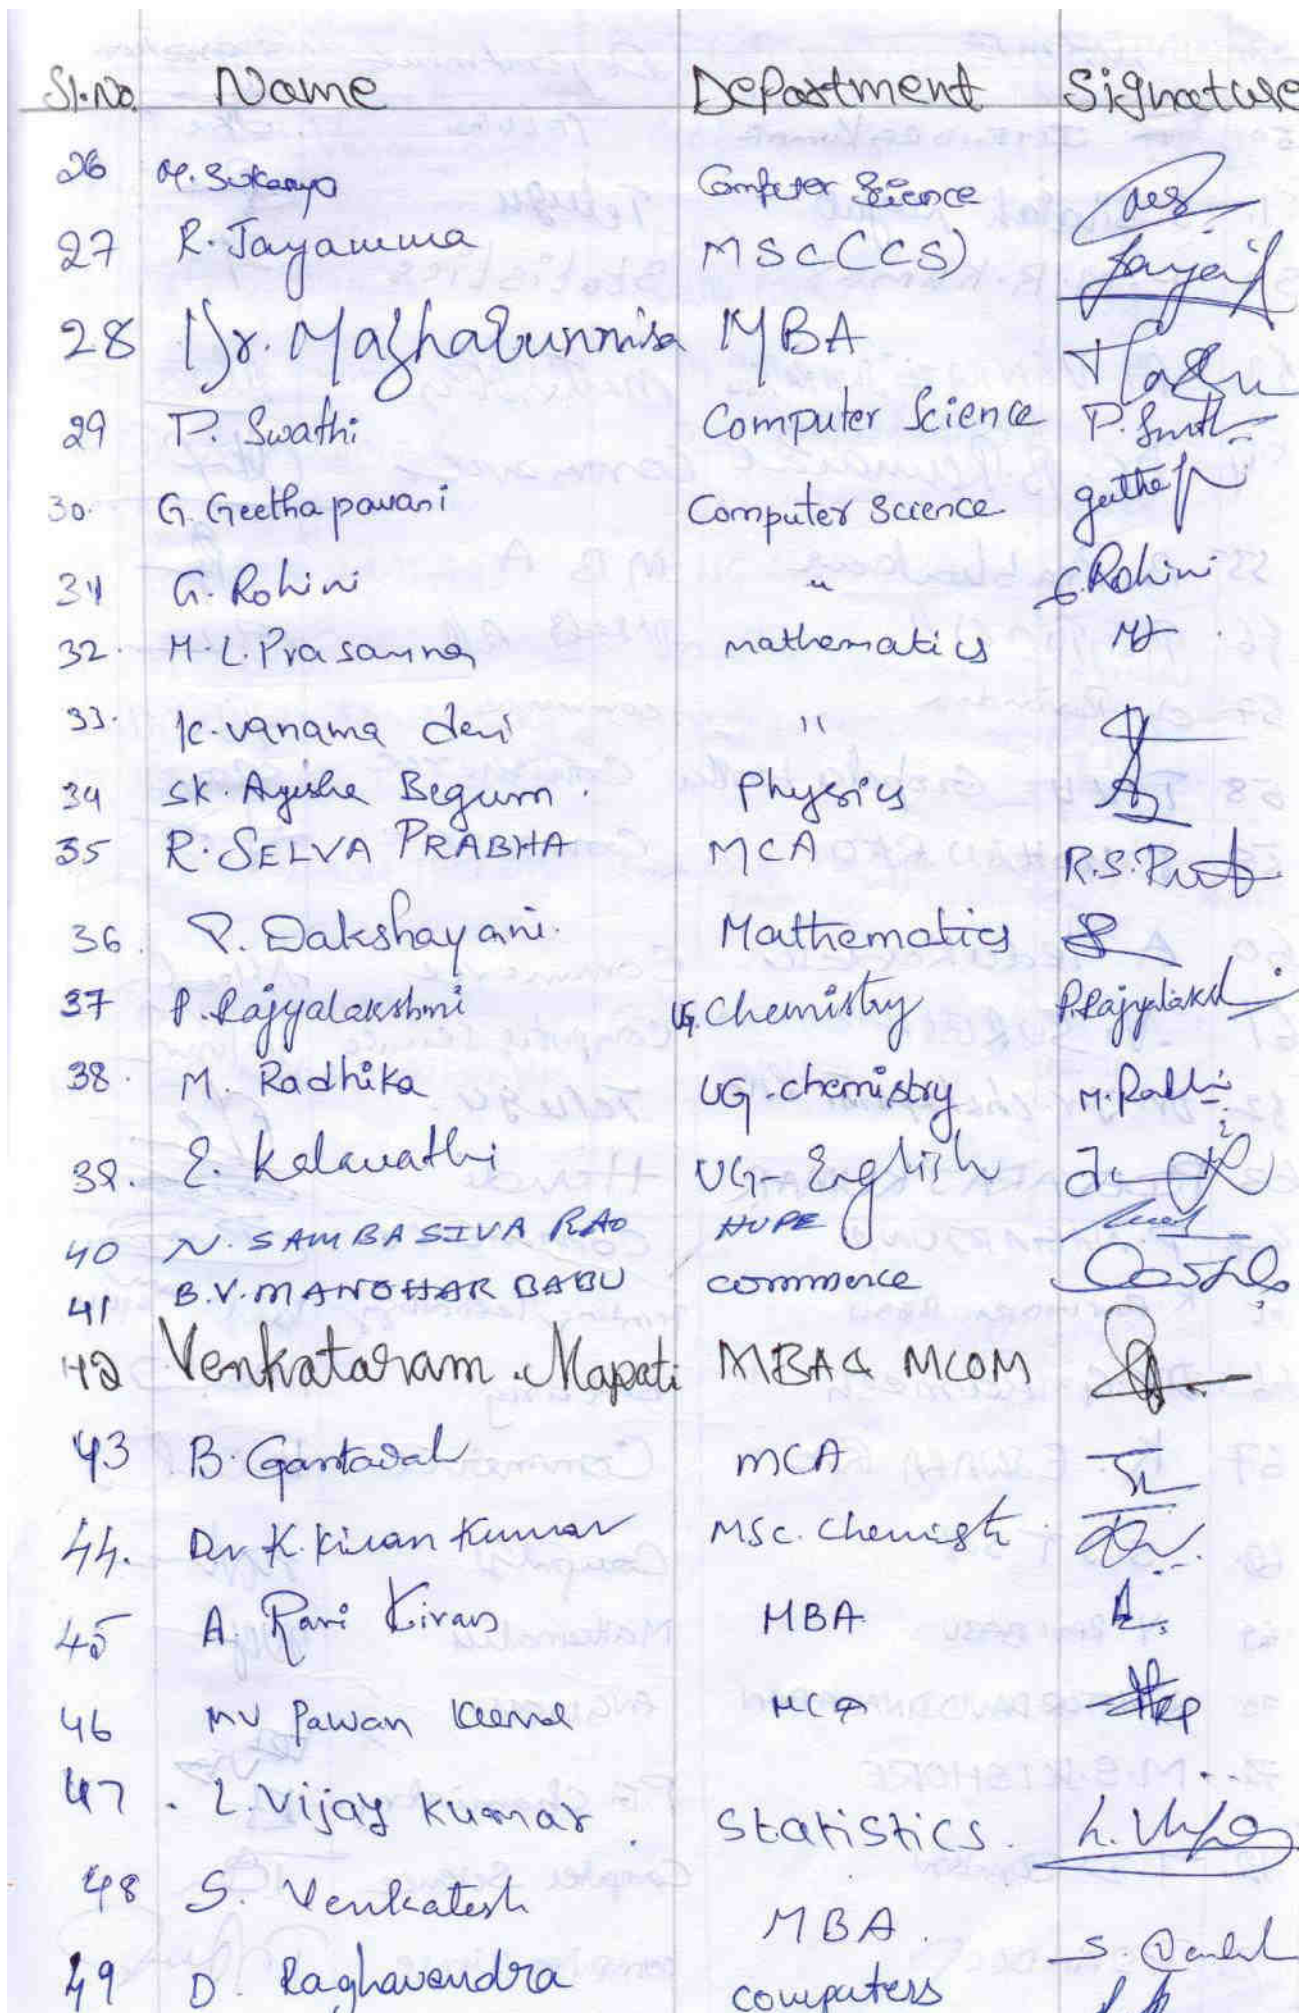 Sl.No. Name Department Signature
26 M. Sukanya Computer Science
27 R. Jayamma MSC(CS)
28 Dr. Mazhabunnisa MBA
29 P. Swathi Computer Science
30. G. Geethapavani Computer Science
31 G. Rohini " G. Rohini
32. M.L. Prasanna mathematics
33. K. vanama devi "
34 SK. Ayisha Begum. Physics
35 R. SELVA PRABHA MCA
36. P. Dakshayani. Mathematics
37 P. Rajyalakshmi UG. Chemistry
38. M. Radhika UG. chemistry
39. E. Kalavathi UG- English
40 N. SAMBASIVA RAO HUPE
41 B.V. MANOHAR BABU commerce
42 Venkataram. Mapati MBA & MCOM
43 B. MCA
44. Dr K. Kiran Kumar MSc.
45 A. Ravi Kiran MBA
46 MV Pawan MCA
47. L. Vijay Kumar. Statistics.
48 S. Venkatesh MBA.
49 D. Raghavendra computers